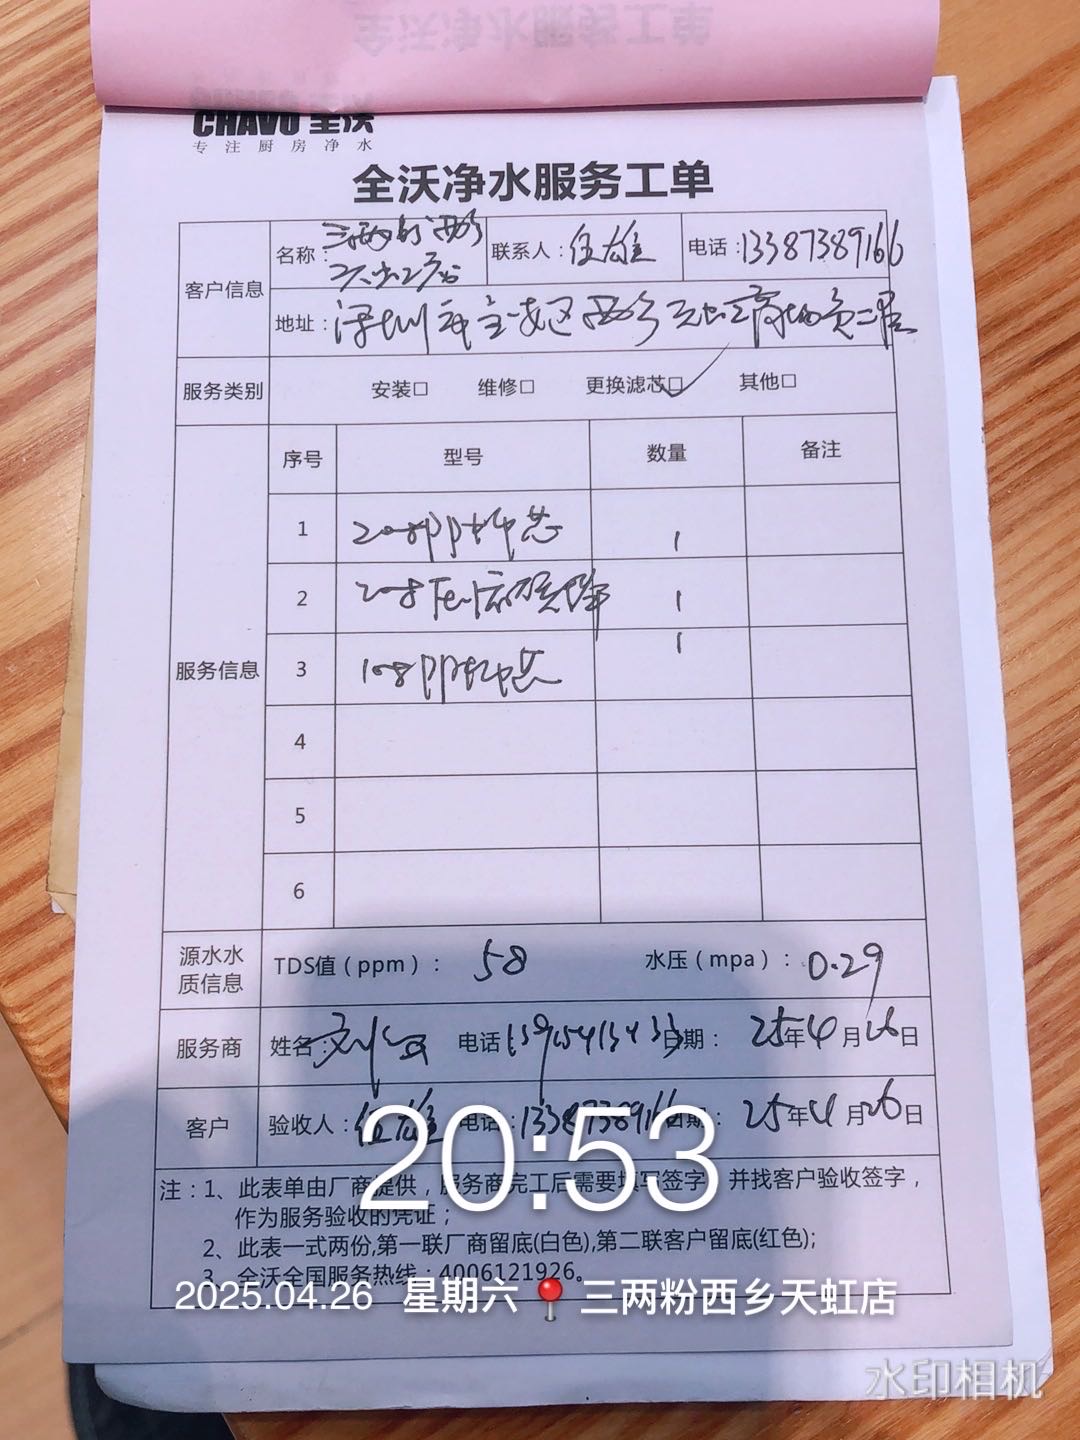 CHAVO 全沃
专注厨房净水
全沃净水服务工单
客户信息
名称：三两粉西乡天虹店
联系人：伍雄
电话：13387389166
地址：深圳市宝安区西乡天虹商场负二层
服务类别
安装□ 维修□ 更换滤芯□✓ 其他□
服务信息
序号 型号 数量 备注
1 20寸PP棉芯 1
2 1
3 10寸PP棉芯 1
4
5
6
源水水质信息
TDS值（ppm）：58 水压（mpa）：0.29
服务商 姓名： 电话 日期：25年4月26日
客户 验收人：伍雄 电话：13387389166 日期：25年4月26日
注：1、此表单由厂商提供，服务商完工后需要填写签字，并找客户验收签字，
作为服务验收的凭证；
2、此表一式两份,第一联厂商留底(白色),第二联客户留底(红色);
3、全沃全国服务热线：4006121926。
20:53
2025.04.26 星期六 三两粉西乡天虹店
水印相机